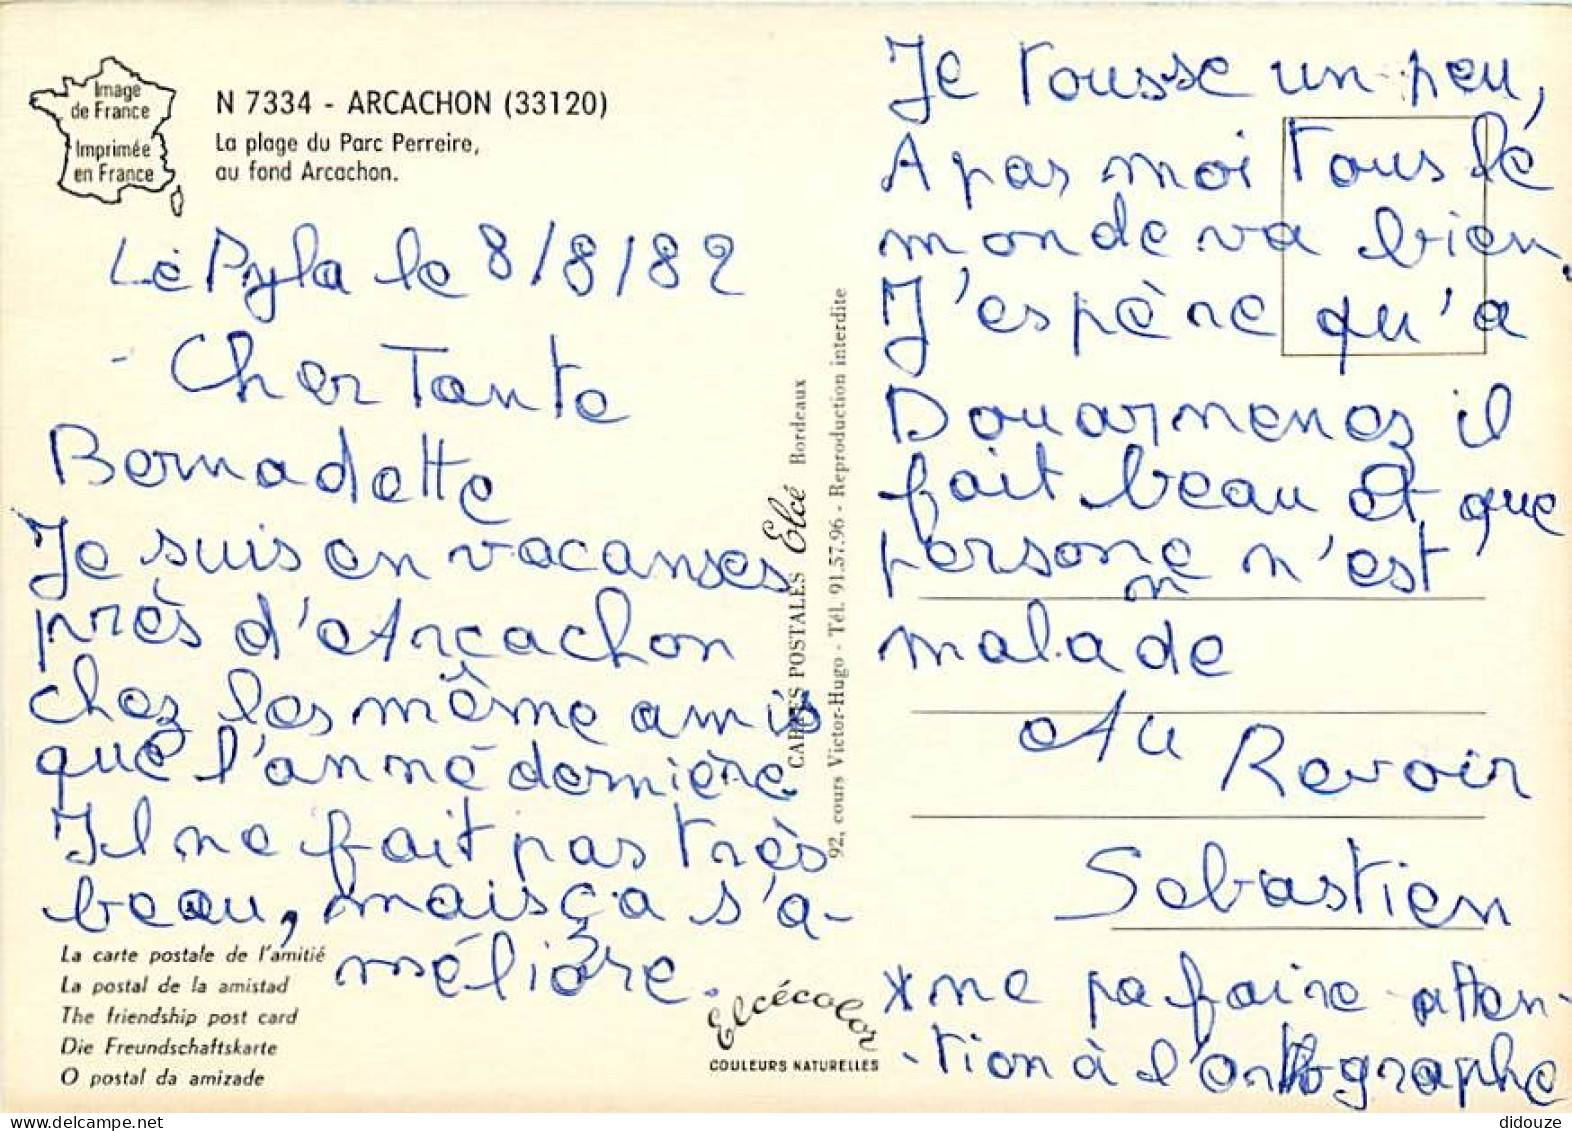 Image
de France
Imprimée
en France
N 7334 - ARCACHON (33120)
La plage du Parc Perreire,
au fond Arcachon.
Le Pyla le 8/8/82
Cher Tante
Bernadette
Je suis en vacanses
près d'Arcachon
chez les même amis
que l'anné dernière.
Il ne fait pas très
beau, mais ça s'a-
méliore.
La carte postale de l'amitié
La postal de la amistad
The friendship post card
Die Freundschaftskarte
O postal da amizade
CARTES POSTALES Elcé Bordeaux
92, cours Victor-Hugo - Tél. 91.57.96 - Reproduction interdite
Elcécolor
COULEURS NATURELLES
Je tousse un peu,
A pas moi tous le
monde va bien.
J'espère qu'a
Douarnenez il
fait beau et que
persone n'est
n
malade
Au
Revoir
Sebastien
*ne pa faire atten-
-tion à l'orthographe
didouze